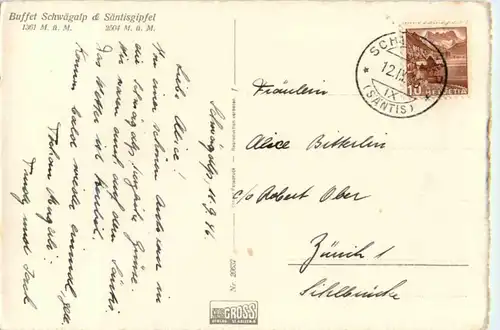 Buffet Schwägalp & Säntisgipfel
1361 M. ü. M. 2504 M. ü. M.
Schwägalp, 11.9.46.
Liebe Alice!
Von einer schönen Autotour in
die Schwägalp, herzliche Grüsse
Wir waren auch auf dem Säntis.
Das Wetter ist herrlich.
Komm bald wieder einmal, gell.
Trudy und
Nr. 20657
GROSS
SCHWÄGALP
12.IX.
IX
(SÄNTIS)
10 HELVETIA
Fräulein
Alice Bitterlin
c/o Robert Ober
Zürich 1
Sihlbrücke